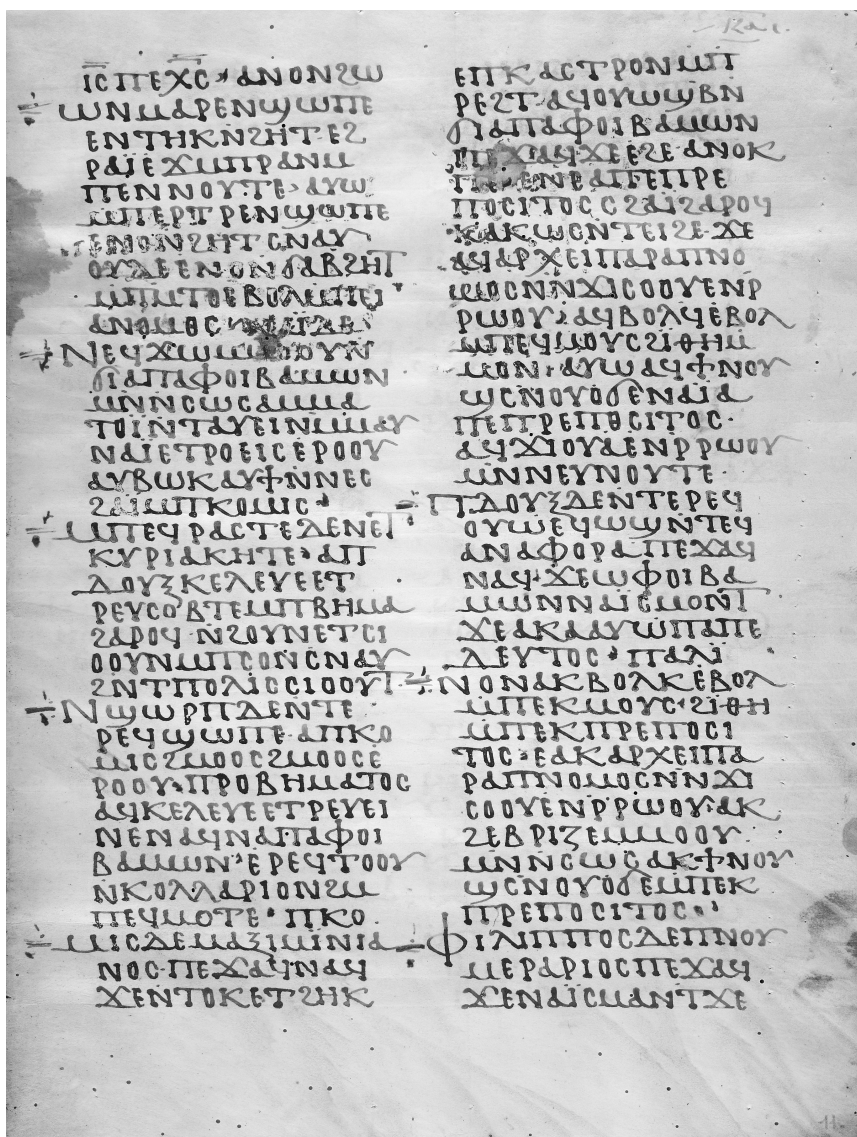 ⲓⲥ ⲡⲉⲭⲥ· ⲁⲛⲟⲛϩⲱ
ⲱⲛⲙⲁⲣⲉⲛϣⲱⲡⲉ
ⲉⲛⲧⲏⲕⲛϩⲏⲧ·ⲉϩ
ⲣⲁⲓⲉϫⲙⲡⲣⲁⲛⲙ
ⲡⲉⲛⲛⲟⲩⲧⲉ· ⲁⲩⲱ
ⲙⲡⲉⲣⲧⲣⲉⲛϣⲱⲡⲉ
ⲉⲛⲟⲛϩⲏⲧ ⲥⲛⲁⲩ
ⲟⲩⲇⲉⲉⲛⲟⲛϭⲁⲃϩⲏⲧ
ⲙⲡⲙⲧⲟⲉⲃⲟⲗⲙⲡⲉⲓ
ⲁⲛⲟⲙⲟⲥ
ⲛⲉϥϫⲱⲙⲙⲟⲟⲩⲛ
ϭⲓⲁⲡⲁⲫⲟⲓⲃⲁⲙⲱⲛ
ⲙⲛⲛⲥⲱⲥⲁⲙⲙⲁ
ⲧⲟⲓⲛⲧⲁⲩⲉⲓⲛⲙⲙⲁⲩ
ⲛⲁⲓⲉⲧⲣⲟⲉⲓⲥⲉⲣⲟⲟⲩ
ⲁⲩⲃⲱⲕⲁⲩϯⲛⲛⲉⲥ
ϩⲁⲓⲙⲡⲕⲟⲙⲓⲥ·
ⲙⲡⲉϥⲣⲁⲥⲧⲉⲇⲉⲛⲉⲧ
ⲕⲩⲣⲓⲁⲕⲏⲧⲉ· ⲁⲡ
ⲇⲟⲩⲝⲕⲉⲗⲉⲩⲉⲉⲧ
ⲣⲉⲩⲥⲟⲃⲧⲉⲙⲡⲃⲏⲙⲁ
ϩⲁⲣⲟϥ·ⲛϩⲟⲩⲛⲉⲧⲥⲓ
ⲟⲟⲩⲛⲙⲡⲥⲟⲛⲥⲛⲁⲩ
ϩⲛⲧⲡⲟⲗⲓⲥⲥⲓⲟⲟⲩⲧ
ⲛϣⲱⲣⲡⲇⲉⲛⲧⲉ
ⲣⲉϥϣⲱⲡⲉ·ⲁⲡⲕⲟ
ⲙⲓⲥϩⲙⲟⲟⲥϩⲙⲟⲟⲥⲉ
ⲣⲟⲟⲩ·ⲡⲣⲟⲃⲏⲙⲁⲧⲟⲥ
ⲁϥⲕⲉⲗⲉⲩⲉⲉⲧⲣⲉⲩⲉⲓ
ⲛⲉⲛⲁϥⲛⲁⲡⲁⲫⲟⲓ
ⲃⲁⲙⲱⲛ·ⲉⲣⲉϥⲧⲟⲟⲩ
ⲛⲕⲟⲗⲗⲁⲣⲓⲟⲛϩⲙ
ⲡⲉϥⲙⲟⲧⲉ· ⲡⲕⲟ
ⲙⲓⲥⲇⲉⲙⲁⲝⲓⲙⲓⲛⲓⲁ
ⲛⲟⲥ·ⲡⲉϫⲁϥⲛⲁϥ
ϫⲉⲛⲧⲟⲕⲉⲧϩⲏⲕ
ⲉⲡⲕⲁⲥⲧⲣⲟⲛⲙⲡ
ⲣⲉϩⲧ·ⲁϥⲟⲩⲱϣⲃⲛ
ϭⲓⲁⲡⲁⲫⲟⲓⲃⲁⲙⲱⲛ
ⲡⲉϫⲁϥ·ϫⲉⲉϩⲉ·ⲁⲛⲟⲕ
ⲡⲉ·ⲉⲛⲉⲁⲡⲉⲡⲣⲉ
ⲡⲟⲥⲓⲧⲟⲥ ⲥϩⲁⲓϩⲁⲣⲟϥ
ⲕⲁⲕⲱⲥⲛⲧⲉⲓϩⲉ·ϫⲉ
ⲁϥⲁⲣⲭⲉⲓⲡⲁⲣⲁⲡⲛⲟ
ⲙⲟⲥⲛⲛϫⲓⲥⲟⲟⲩⲉⲛⲣ
ⲣⲱⲟⲩ·ⲁϥⲃⲟⲗϥⲉⲃⲟⲗ
ⲙⲡⲉϥⲙⲟⲩⲥϩⲓⲑⲏⲙ
ⲙⲟⲛ·ⲁⲩⲱⲁϥϯⲛⲟⲩ
ϣⲥⲛⲟⲩⲟϭⲉⲛⲁⲓⲁ
ⲡⲉⲡⲣⲉⲡⲟⲥⲓⲧⲟⲥ·
ⲁϥϫⲓⲟⲩⲁⲉⲛⲣⲣⲱⲟⲩ
ⲙⲛⲛⲉⲩⲛⲟⲩⲧⲉ·
ⲡⲇⲟⲩⲝⲇⲉⲛⲧⲉⲣⲉϥ
ⲟⲩⲱⲉϥⲱϣⲛⲧⲉϥ
ⲁⲛⲁⲫⲟⲣⲁ·ⲡⲉϫⲁϥ
ⲛⲁϥ·ϫⲉⲱⲫⲟⲓⲃⲁ
ⲙⲱⲛⲛⲁⲓⲥⲙⲟⲛⲧ
ϫⲉⲁⲕⲁⲁⲩⲱⲡⲁⲡⲉ
ⲗⲉⲩⲧⲟⲥ· ⲡⲁⲗⲓ
ⲛⲟⲛⲁⲕⲃⲟⲗⲕⲉⲃⲟⲗ
ⲙⲡⲉⲕⲙⲟⲩⲥ·ϩⲓⲑⲏ
ⲙⲡⲉⲕⲡⲣⲉⲡⲟⲥⲓ
ⲧⲟⲥ·ⲉⲁⲕⲁⲣⲭⲉⲓⲡⲁ
ⲣⲁⲡⲛⲟⲙⲟⲥⲛⲛϫⲓ
ⲥⲟⲟⲩⲉⲛⲣⲣⲱⲟⲩ·ⲁⲕ
ϩⲉⲃⲣⲓⲍⲉⲙⲙⲟⲟⲩ·
ⲙⲛⲛⲥⲱⲥⲁⲕϯⲛⲟⲩ
ϣⲥⲛⲟⲩⲟϭⲉⲙⲡⲉⲕ
ⲡⲣⲉⲡⲟⲥⲓⲧⲟⲥ·
ⲫⲓⲗⲓⲡⲡⲟⲥⲇⲉⲡⲛⲟⲩ
ⲙⲉⲣⲁⲣⲓⲟⲥⲡⲉϫⲁϥ
ϫⲉⲛⲁⲓⲥⲙⲁⲛⲧϫⲉ